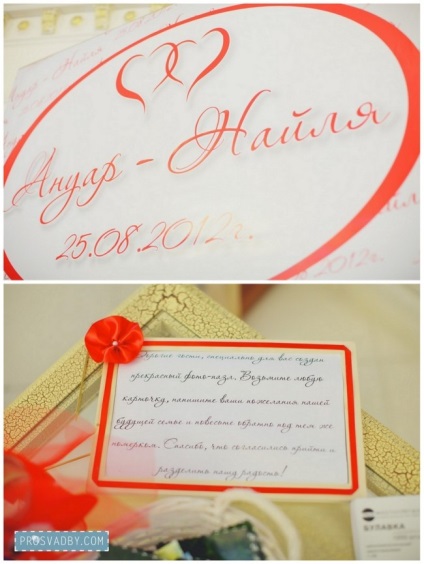 Ануар - Найля
Ануар - Найля
25.08.2012г.
Дорогие гости, специально для вас создан
прекрасный фото-пазл. Возьмите любую
карточку, напишите ваши пожелания нашей
будущей семье и повесьте обратно под тем же
номерком. Спасибо, что согласились прийти и
разделить нашу радость!
БУЛАВКА
PROSVADBY.COM